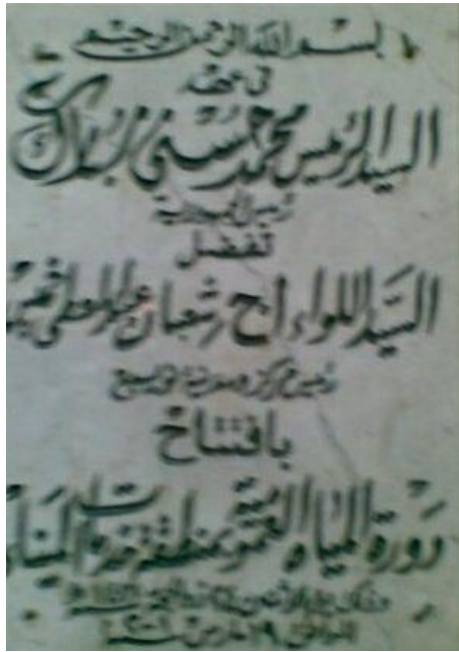 بسم الله الرحمن الرحيم
في عهد
السيد الرئيس محمد حسني مبارك
رئيس الجمهورية
تفضل
السيد اللواء أ ح شعبان عبد المعطي
رئيس مركز ومدينة
بافتتاح
دورة المياه العمومية بمنطقة خدمات
وذلك يوم الاثنين
الموافق ١٩ مارس